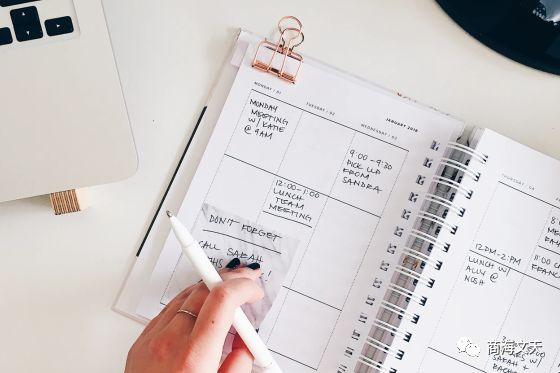 MONDAY / 01
MONDAY
MEETING
W/ KATIE
@ 9AM
TUESDAY / 02
JANUARY 2018
WEDNESDAY / 03
9:00 - 9:30
PICK UP
FROM
SANDRA
12:00 - 1:00
LUNCH
TEAM
MEETING
DON'T FORGET
CALL SARAH
THIS
!
THURSDAY / 04
12PM - 2PM
LUNCH W/
ALLY @
NOSH
W/
SARAH +
商海文天